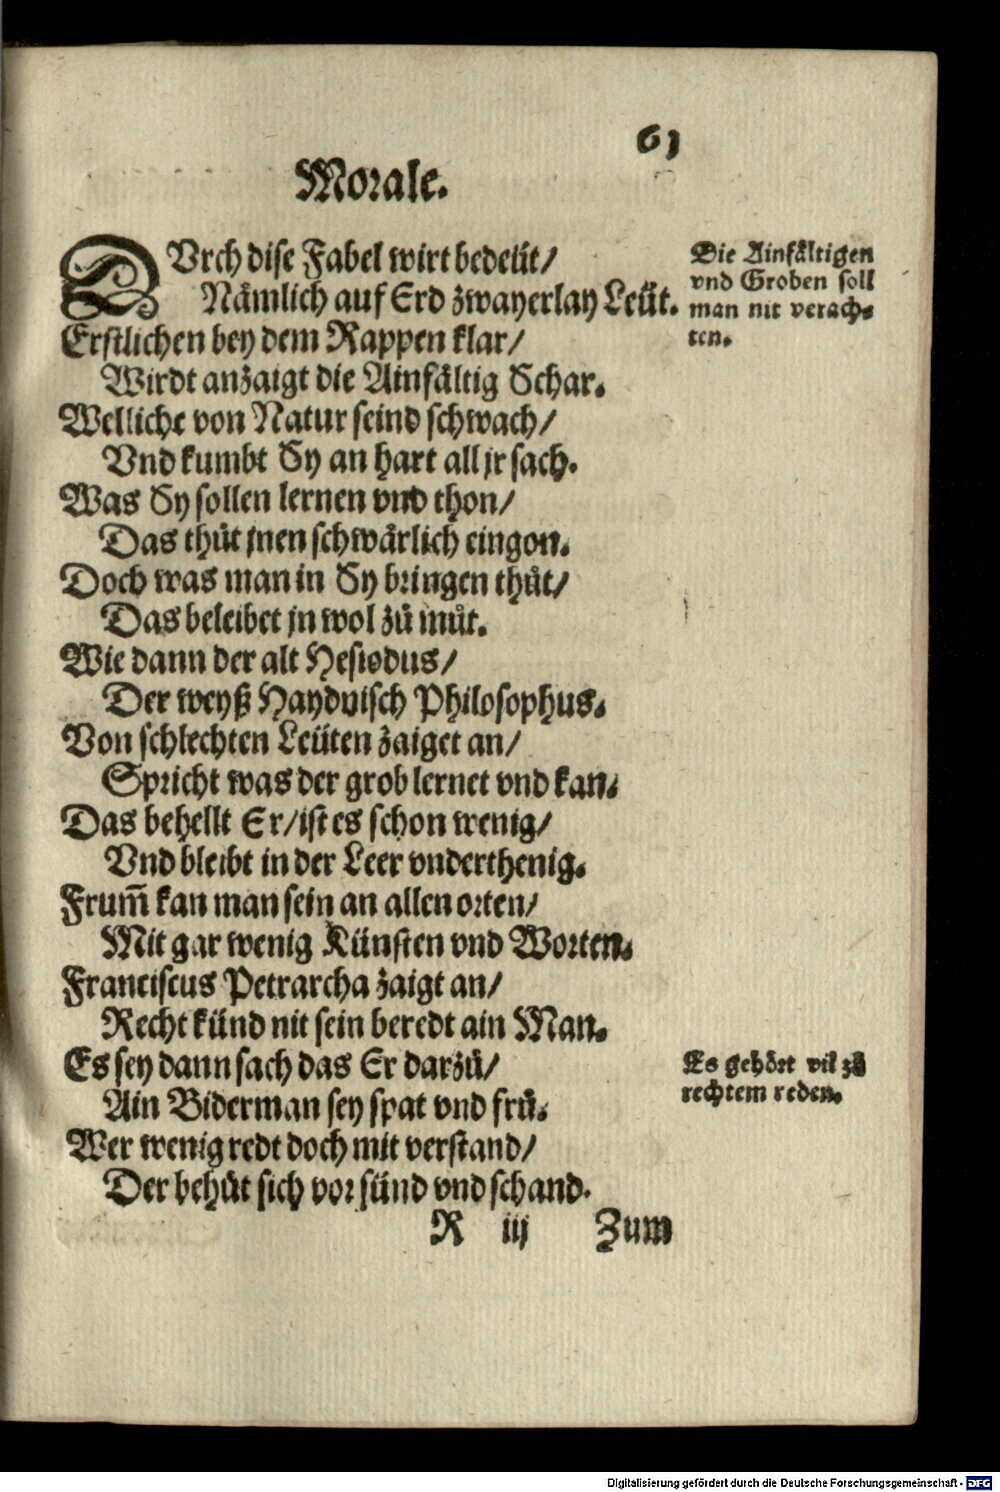 61
Morale.
DUrch dise Fabel wirt bedeüt/
Nämlich auf Erd zwayerlay Leüt.
Erstlichen bey dem Rappen klar/
Wirdt anzaigt die Ainfältig Schar.
Welliche von Natur seind schwach/
Vnd kumbt Sy an hart all jr sach.
Was Sy sollen lernen vnd thon/
Das thůt jnen schwärlich eingon.
Doch was man in Sy bringen thůt/
Das beleibet jn wol zů můt.
Wie dann der alt Hesiodus/
Der weyß Haydnisch Philosophus.
Von schlechten Leüten zaiget an/
Spricht was der grob lernet vnd kan.
Das behellt Er/ist es schon wenig/
Vnd bleibt in der Leer vnderthenig.
Frum̃ kan man sein an allen orten/
Mit gar wenig Künsten vnd Worten.
Franciscus Petrarcha zaigt an/
Recht künd nit sein beredt ain Man.
Es sey dann sach das Er darzů/
Ain Biderman sey spat vnd frů.
Wer wenig redt doch mit verstand/
Der behůt sich vor sünd vnd schand.
R iij Zum
Die Ainfältigen
vnd Groben soll
man nit verach-
ten.
Es gehört vil zů
rechtem reden.
Digitalisierung gefördert durch die Deutsche Forschungsgemeinschaft - DFG